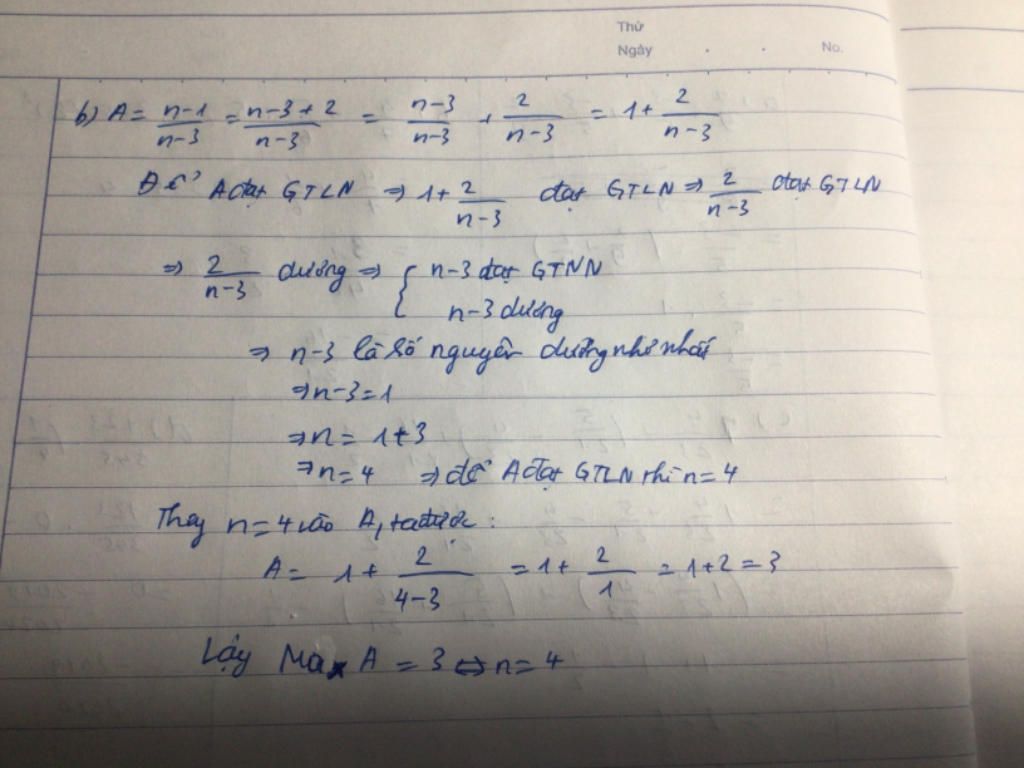 Thứ
Ngày . . No.
b) A = n-1/n-3 = n-3+2/n-3 = n-3/n-3 + 2/n-3 = 1 + 2/n-3
Để A đạt GTLN ⇒ 1 + 2/n-3 đạt GTLN ⇒ 2/n-3 đạt GTLN
⇒ 2/n-3 dương ⇒ { n-3 đạt GTNN
n-3 dương
⇒ n-3 là số nguyên dương nhỏ nhất
⇒ n-3 = 1
⇒ n = 1+3
⇒ n = 4 ⇒ để A đạt GTLN thì n = 4
Thay n = 4 vào A, ta được:
A = 1 + 2/4-3 = 1 + 2/1 = 1+2 = 3
Vậy Max A = 3 ⇔ n = 4